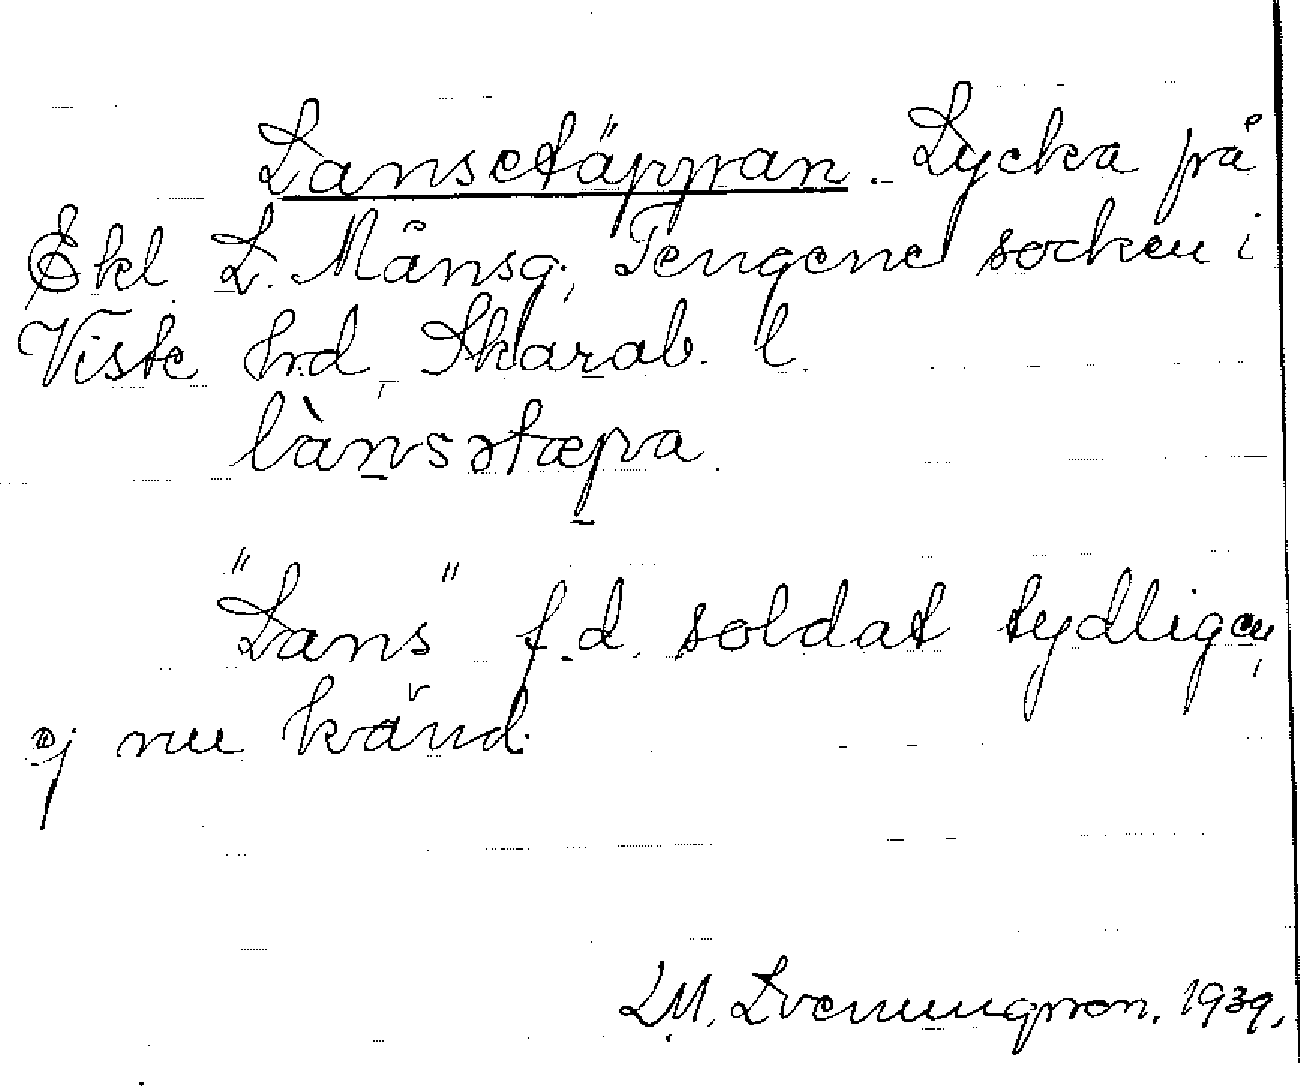 Lansetäppan. Lycka på
Ekl. L. Månsg., Tengene socken i
Viste hrd, Skarab. l.
lànsətæpa.
"Lans" f.d. soldat tydligen,
ej nu känd.
L M. Svenungsson. 1939.